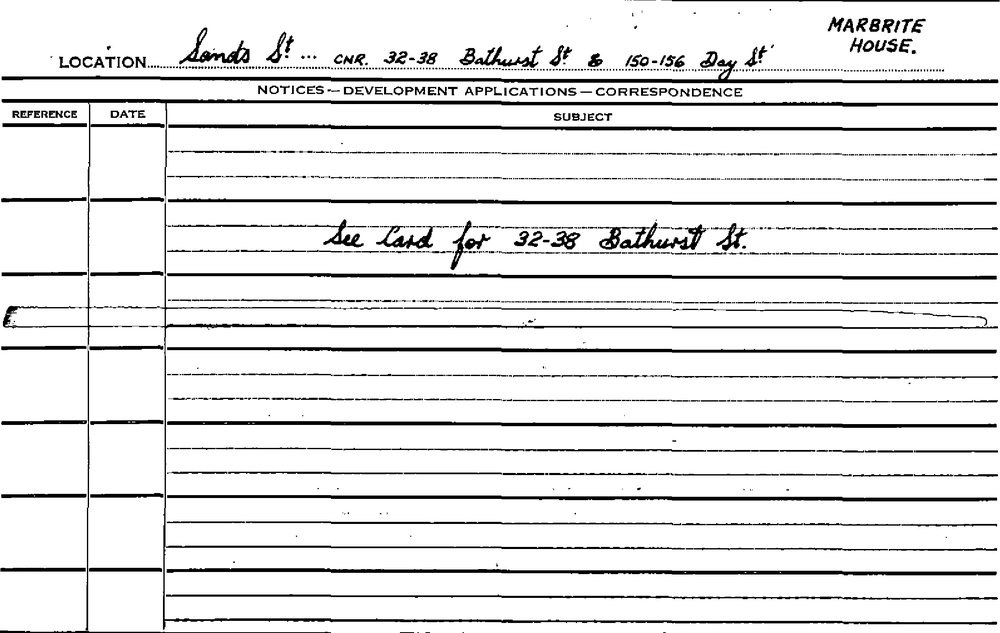 MARBRITE
HOUSE.
LOCATION Sands St... CNR. 32-38 Bathurst St & 150-156 Day St
NOTICES—DEVELOPMENT APPLICATIONS—CORRESPONDENCE
REFERENCE DATE SUBJECT
See Card for 32-38 Bathurst St.